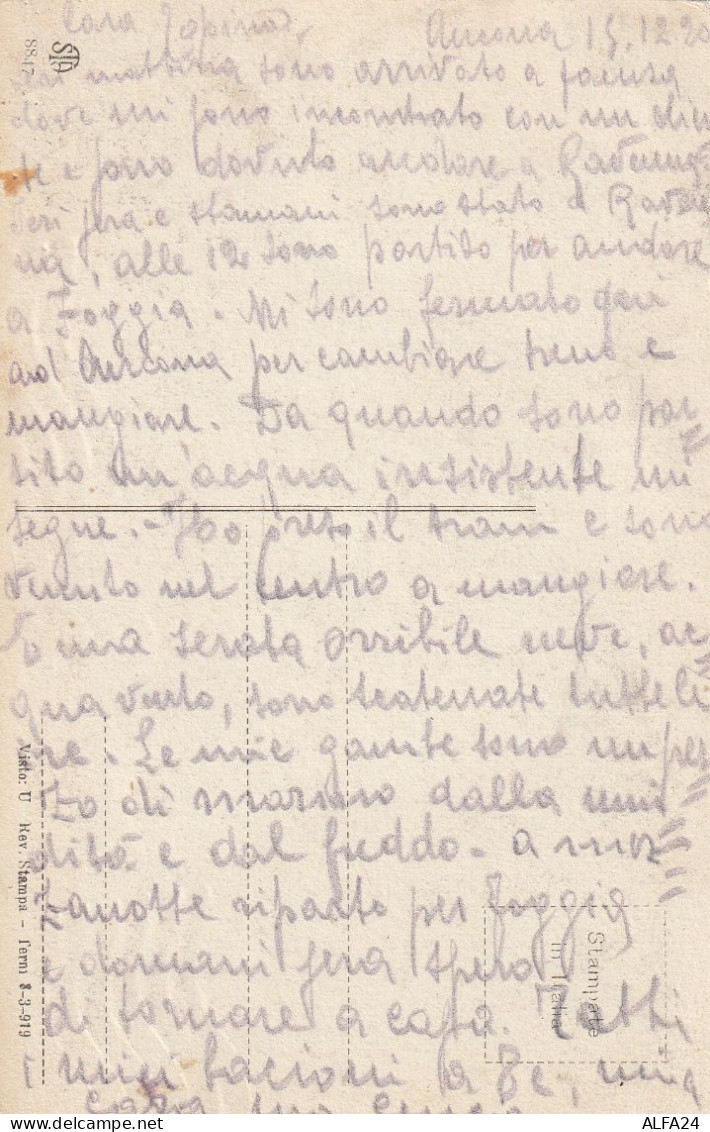 Cara Ancona 15.12.20
mattina sono arrivato a faenza
dove mi sono incontrato con un clien
te e sono dovuto andare a Ravenna
Ieri sera e stamani sono stato a Raven
na, alle 12 sono partito per andare
a Foggia. Mi sono fermato qui
ad Ancona per cambiare treno e
mangiare. Da quando sono par
tito un'acqua insistente mi
segue. - Ho preso il tram e sono
venuto nel centro a mangiare.
È una serata orribile neve, ac
qua vento, sono scatenate tutte l'i
re. Le mie gambe sono un pez
zo di marmo dalla umi
dità e dal freddo. a mez
zanotte riparto per Foggia
e domani sera spero
di tornare a casa. Tutti
i miei bacioni a te, mia
cara
STA
8847
Visto: U Rev. Stampa - Terni 8-3-919
Stampate
in Italia
ALFA24